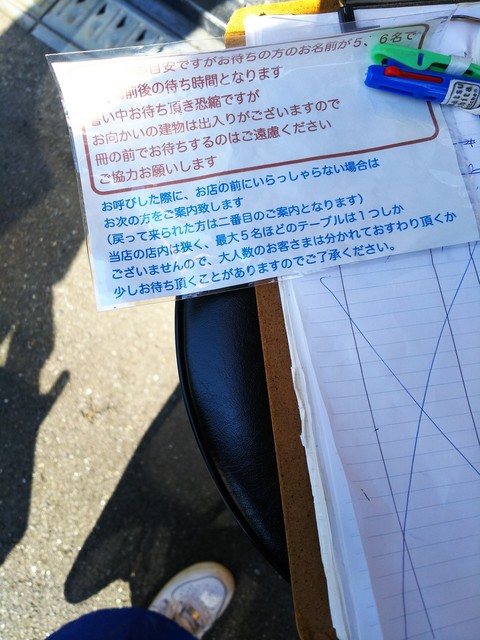 の目安ですがお待ちの方のお名前が5、6名で
前後の待ち時間となります
い中お待ち頂き恐縮ですが
お向かいの建物は出入りがございますので
冊の前でお待ちするのはご遠慮ください
ご協力お願いします
お呼びした際に、お店の前にいらっしゃらない場合は
お次の方をご案内致します
（戻って来られた方は二番目のご案内となります）
当店の店内は狭く、最大5名ほどのテーブルは1つしか
ございませんので、大人数のお客さまは分かれておすわり頂くか
少しお待ち頂くことがありますのでご了承ください。